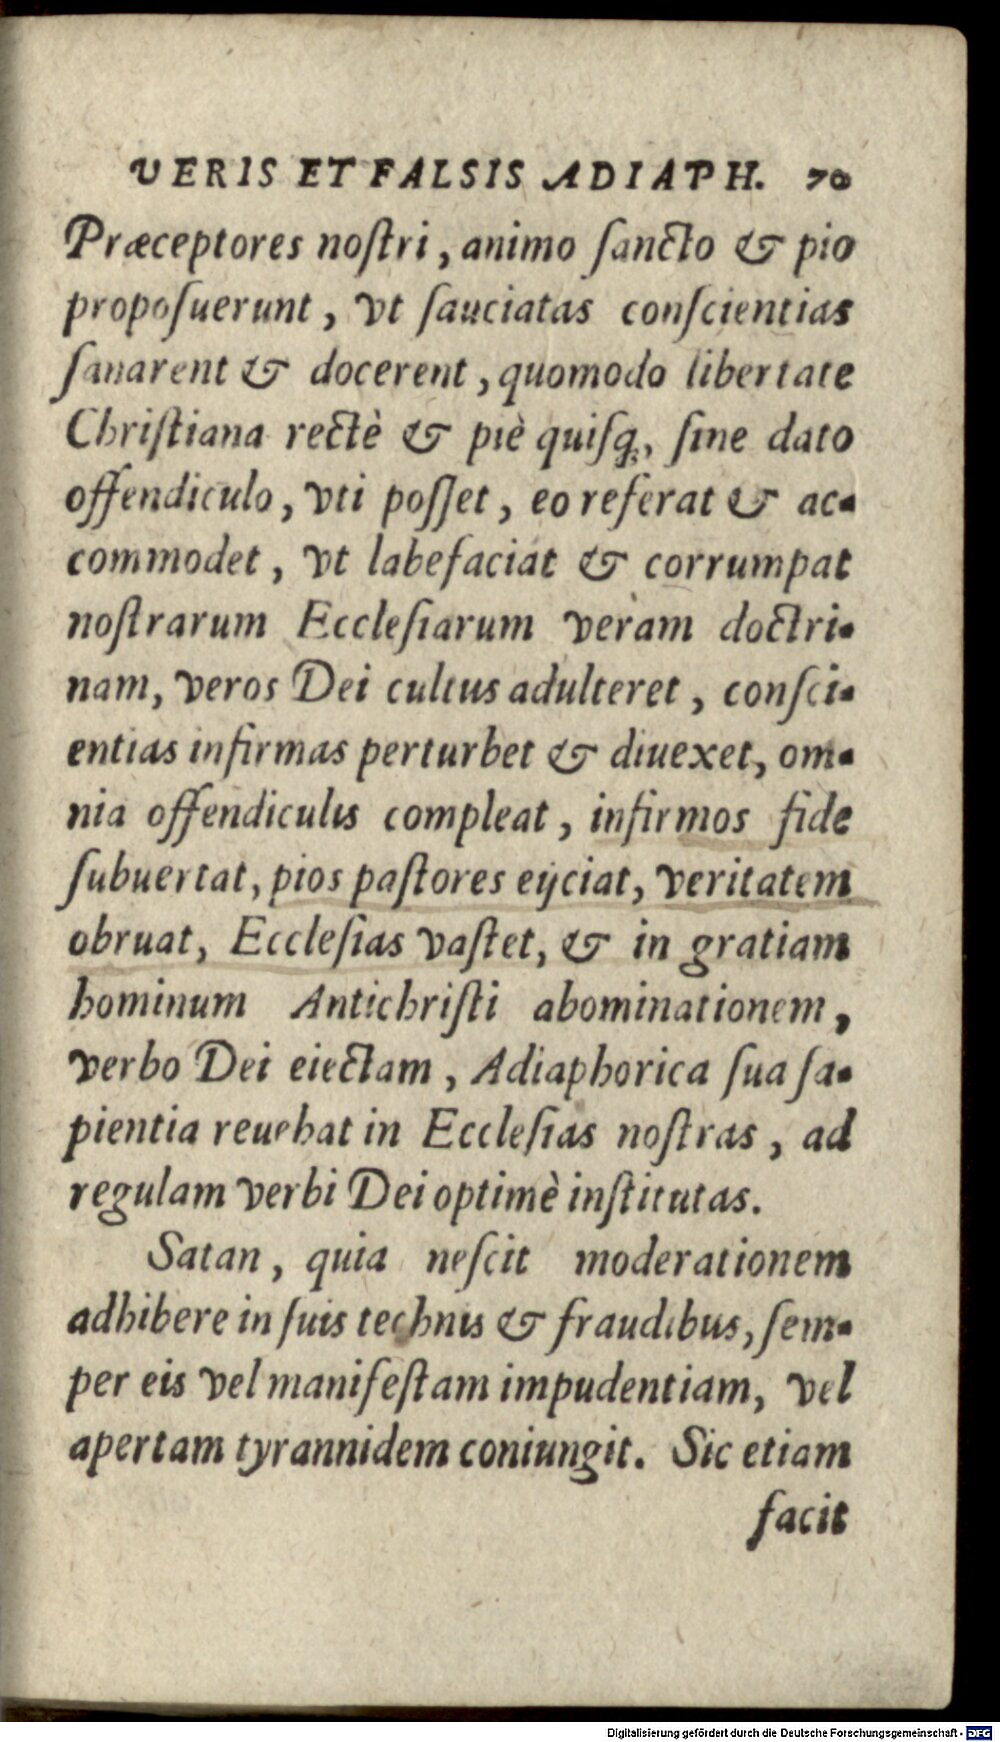 VERIS ET FALSIS ADIAPH. 70
Præceptores noſtri, animo ſancto & pio
propoſuerunt, vt ſauciatas conſcientias
ſanarent & docerent, quomodo libertate
Chriſtiana rectè & piè quiſq;, ſine dato
offendiculo, vti poſſet, eo referat & ac-
commodet, vt labefaciat & corrumpat
noſtrarum Eccleſiarum veram doctri-
nam, veros Dei cultus adulteret, conſci-
entias infirmas perturbet & diuexet, om-
nia offendiculis compleat, infirmos fide
ſubuertat, pios paſtores eijciat, veritatem
obruat, Eccleſias vaſtet, & in gratiam
hominum Antichriſti abominationem,
verbo Dei eiectam, Adiaphorica ſua ſa-
pientia reuehat in Eccleſias noſtras, ad
regulam verbi Dei optimè inſtitutas.
Satan, quia neſcit moderationem
adhibere in ſuis technis & fraudibus, ſem-
per eis vel manifeſtam impudentiam, vel
apertam tyrannidem coniungit. Sic etiam
facit
Digitalisierung gefördert durch die Deutsche Forschungsgemeinschaft - DFG